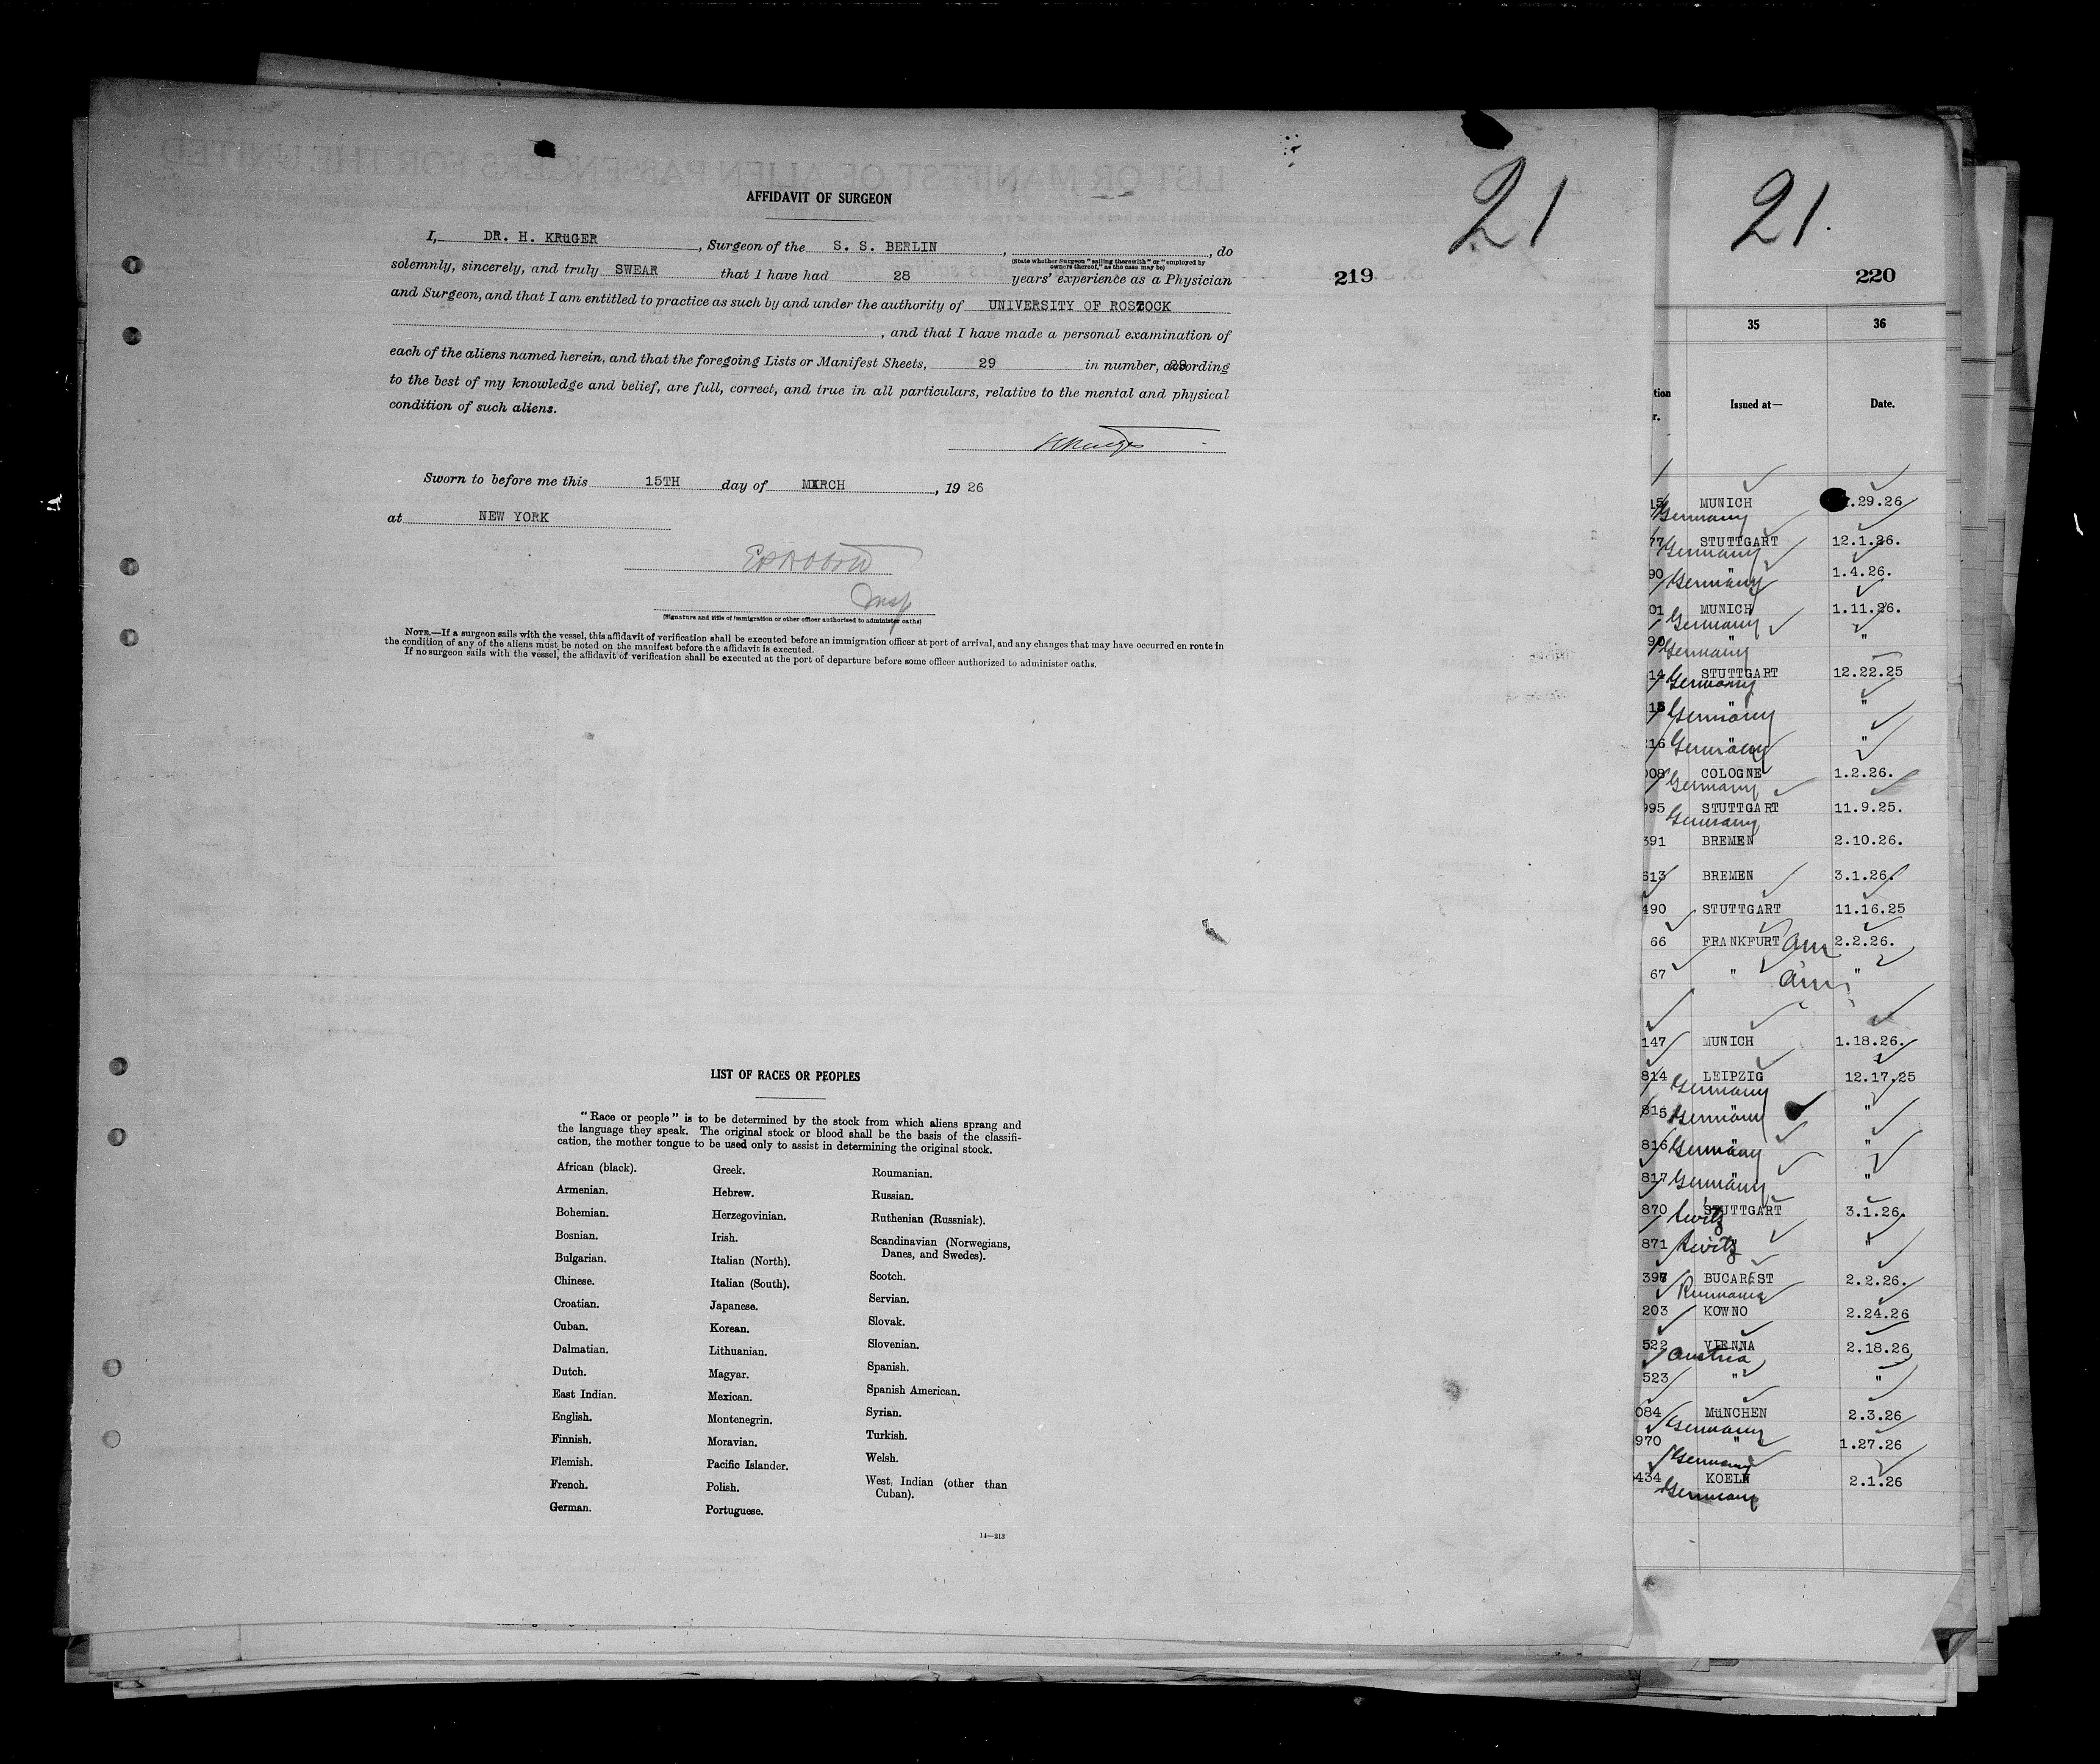 AFFIDAVIT OF SURGEON
21
I, DR. H. KRüGER, Surgeon of the S. S. BERLIN, do
(State whether Surgeon "sailing therewith" or "employed by
owners thereof," as the case may be)
solemnly, sincerely, and truly SWEAR that I have had 28 years' experience as a Physician
219
and Surgeon, and that I am entitled to practice as such by and under the authority of UNIVERSITY OF ROSTOCK
, and that I have made a personal examination of
each of the aliens named herein, and that the foregoing Lists or Manifest Sheets, 29 in number, according
to the best of my knowledge and belief, are full, correct, and true in all particulars, relative to the mental and physical
condition of such aliens.
Sworn to before me this 15TH day of MARCH, 1926
at NEW YORK
Insp
(Signature and title of immigration or other officer authorized to administer oaths)
NOTE.—If a surgeon sails with the vessel, this affidavit of verification shall be executed before an immigration officer at port of arrival, and any changes that may have occurred en route in
the condition of any of the aliens must be noted on the manifest before the affidavit is executed.
If no surgeon sails with the vessel, the affidavit of verification shall be executed at the port of departure before some officer authorized to administer oaths.
LIST OF RACES OR PEOPLES
"Race or people" is to be determined by the stock from which aliens sprang and
the language they speak. The original stock or blood shall be the basis of the classifi-
cation, the mother tongue to be used only to assist in determining the original stock.
African (black).
Armenian.
Bohemian.
Bosnian.
Bulgarian.
Chinese.
Croatian.
Cuban.
Dalmatian.
Dutch.
East Indian.
English.
Finnish.
Flemish.
French.
German.
Greek.
Hebrew.
Herzegovinian.
Irish.
Italian (North).
Italian (South).
Japanese.
Korean.
Lithuanian.
Magyar.
Mexican.
Montenegrin.
Moravian.
Pacific Islander.
Polish.
Portuguese.
Roumanian.
Russian.
Ruthenian (Russniak).
Scandinavian (Norwegians,
Danes, and Swedes).
Scotch.
Servian.
Slovak.
Slovenian.
Spanish.
Spanish American.
Syrian.
Turkish.
Welsh.
West Indian (other than
Cuban).
14—213
21.
220
35 36
tion
r. Issued at— Date.
15 MUNICH .29.26
Germany
77 STUTTGART 12.1.26.
Germany
90 Germany " 1.4.26.
01 MUNICH 1.11.26.
Germany
90 Germany " "
14 STUTTGART 12.22.25
Germany
15 Germany " "
216 Germany " "
008 COLOGNE 1.2.26.
Germany
995 STUTTGART 11.9.25.
Germany
391 BREMEN 2.10.26.
613 BREMEN 3.1.26.
490 STUTTGART 11.16.25
66 FRANKFURT am 2.2.26.
67 " am "
147 MUNICH 1.18.26.
814 LEIPZIG 12.17.25
Germany
815 Germany " "
816 Germany " "
817 Germany " "
870 STUTTGART 3.1.26.
871 " "
397 BUCAREST 2.2.26.
Rumania
203 KOWNO 2.24.26
522 VIENNA 2.18.26
Austria
523 " "
084 MüNCHEN 2.3.26
Germany
970 " 1.27.26
Germany
434 KOELN 2.1.26
Germany